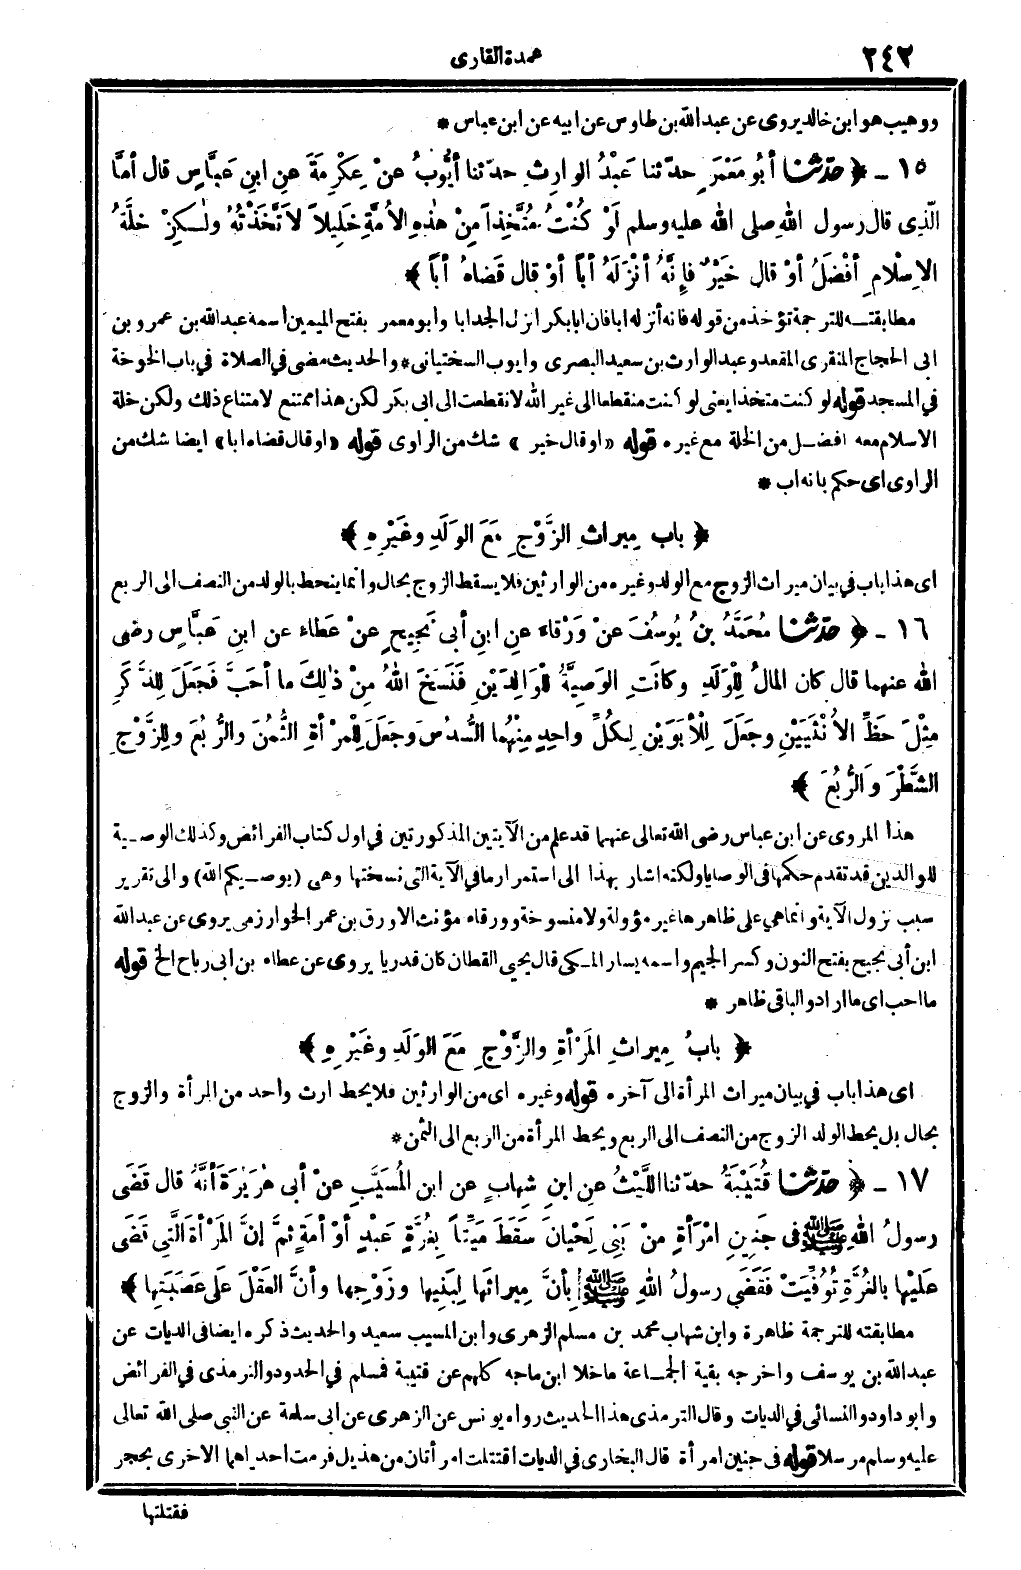 عمدة القارى
٢٤٢
ووهيب هو ابن خالد يروى عن عبد الله بن طاوس عن ابيه عن ابن عباس *
١٥ - ﴿ حَدَّثَنَا أبُو مَعْمَرٍ حدّثنا عَبْدُ الوارِثِ حدّثنا أيُّوبُ عنْ عِكْرِمَةَ عنِ ابنِ عَبَّاسٍ قال أمَّا
الّذِى قال رسول اللهِ صلى الله عليه وسلم لَوْ كُنْتُ مُتَّخِذاً مِنْ هٰذِهِ الأُمَّةِ خَلِيلاً لاَتَّخَذْتُهُ ولٰكِنْ خلَّةُ
الإسْلامِ أفْضَلُ أوْ قال خَيْرٌ فإنَّهُ أنْزَلَهُ أباً أوْ قال قَضاهُ أباً ﴾
مطابقتـه للترجمة تؤخذ من قوله فانه أنزله ابا فان ابابكر انزل الجد ابا وأبو معمر بفتح الميمين اسمه عبد الله بن عمرو بن
ابى الحجاج المنقرى المقعد وعبد الوارث بن سعيد البصرى وايوب السختيانى * والحديث مضى في الصلاة في باب الخوخة
في المسجد قوله لو كنت متخذا يعنى لو كنت منقطعا الى غير الله لانقطعت الى ابى بكر لكن هذا ممتنع لامتناع ذلك ولكن خلة
الاسلام معه افضل من الخلة مع غيره قوله «او قال خير» شك من الراوى قوله «او قال قضاه ابا» ايضا شك من
الراوى اى حكم بانه اب *
﴿ باب مِيراثِ الزَّوْجِ مَعَ الوَلَدِ وغَيْرِهِ ﴾
اى هذا باب في بيان ميراث الزوج مع الولد وغيره من الوارثين فلا يسقط الزوج بحال وانما ينحط بالولد من النصف الى الربع
١٦ - ﴿ حَدَّثَنَا مُحَمَّدُ بنُ يُوسُفَ عنْ وَرْقاءَ عنِ ابنِ أبى نَجِيحٍ عنْ عَطاءٍ عن ابنِ عَبَّاسٍ رضى
الله عنهما قال كان المالُ لِلْوَلَدِ وكانَتِ الوَصِيَّةُ لِلْوَالِدَيْنِ فَنَسَخَ اللهُ مِنْ ذٰلِكَ ما أحَبَّ فَجَعَلَ لِلذَّكَرِ
مِثْلَ حَظِّ الأُنْثَيَيْنِ وجَعَلَ لِلْأَبَوَيْنِ لِكُلِّ واحِدٍ مِنْهُما السُّدُسَ وجَعَلَ لِلْمَرْأةِ الثُّمُنَ والرُّبُعَ ولِلزَّوْجِ
الشَّطْرَ والرُّبُعَ ﴾
هذا المروى عن ابن عباس رضى الله تعالى عنهما قد علم من الآيتين المذكورتين في اول كتاب الفرائض وكذلك الوصـية
للوالدين قد تقدم حكمها في الوصايا ولكنه اشار بهذا الى استمرار ما في الآية التى نسختها وهى (يوصـيكم الله) والى تقرير
سبب نزول الآية وانما هي على ظاهرها غير مؤولة ولا منسوخة وورقاء مؤنث الاورق بن عمر الخوارزمى يروى عن عبد الله
ابن أبى نجيح بفتح النون وكسر الجيم واسمه يسار المـكى قال يحيى القطان كان قدريا يروى عن عطاء بن ابى رباح الخ قوله
ما احب اى ما اراد والباقى ظاهر *
﴿ بابُ مِيراثِ المَرْأةِ والزَّوْجِ مَعَ الوَلَدِ وغَيْرِهِ ﴾
اى هذا باب في بيان ميراث المرأة الى آخره قوله وغيره اى من الوارثين فلا يحط ارث واحد من المرأة والزوج
بحال بل يحط الولد الزوج من النصف الى الربع ويحط المرأة من الربع الى الثمن *
١٧ - ﴿ حَدَّثَنَا قُتَيْبَةُ حدّثنا اللَّيْثُ عنِ ابنِ شِهابٍ عن ابنِ المُسَيَّبِ عنْ أبى هُرَيْرَةَ أنَّهُ قال قَضَى
رسولُ اللهِ ﷺ فى جَنِينِ امْرَأةٍ مِنْ بَنِى لَحْيانَ سَقَطَ مَيِّتاً بِغُرَّةٍ عَبْدٍ أوْ أمَةٍ ثمَّ إنَّ المَرْأةَ الَّتِى قَضَى
عَلَيْها بالغُرَّةِ تُوُفِّيَتْ فَقَضَى رسولُ اللهِ ﷺ بأنَّ مِيراثَها لِبَنِيها وزَوْجِها وأنَّ العَقْلَ عَلَى عَصَبَتِها ﴾
مطابقته للترجمة ظاهرة وابن شهاب محمد بن مسلم الزهرى وابن المسيب سعيد والحديث ذكره ايضا فى الديات عن
عبد الله بن يوسف واخرجه بقية الجمـاعة ما خلا ابن ماجه كلهم عن قتيبة فمسلم في الحدود والترمذى في الفرائض
وابو داود والنسائى في الديات وقال الترمذى هذا الحديث رواه يونس عن الزهرى عن ابى سلمة عن النبى صلى الله تعالى
عليه وسلم مرسلا قوله فى جنين امرأة قال البخارى في الديات اقتتلت امرأتان من هذيل فرمت احداهما الاخرى بحجر
فقتلتها